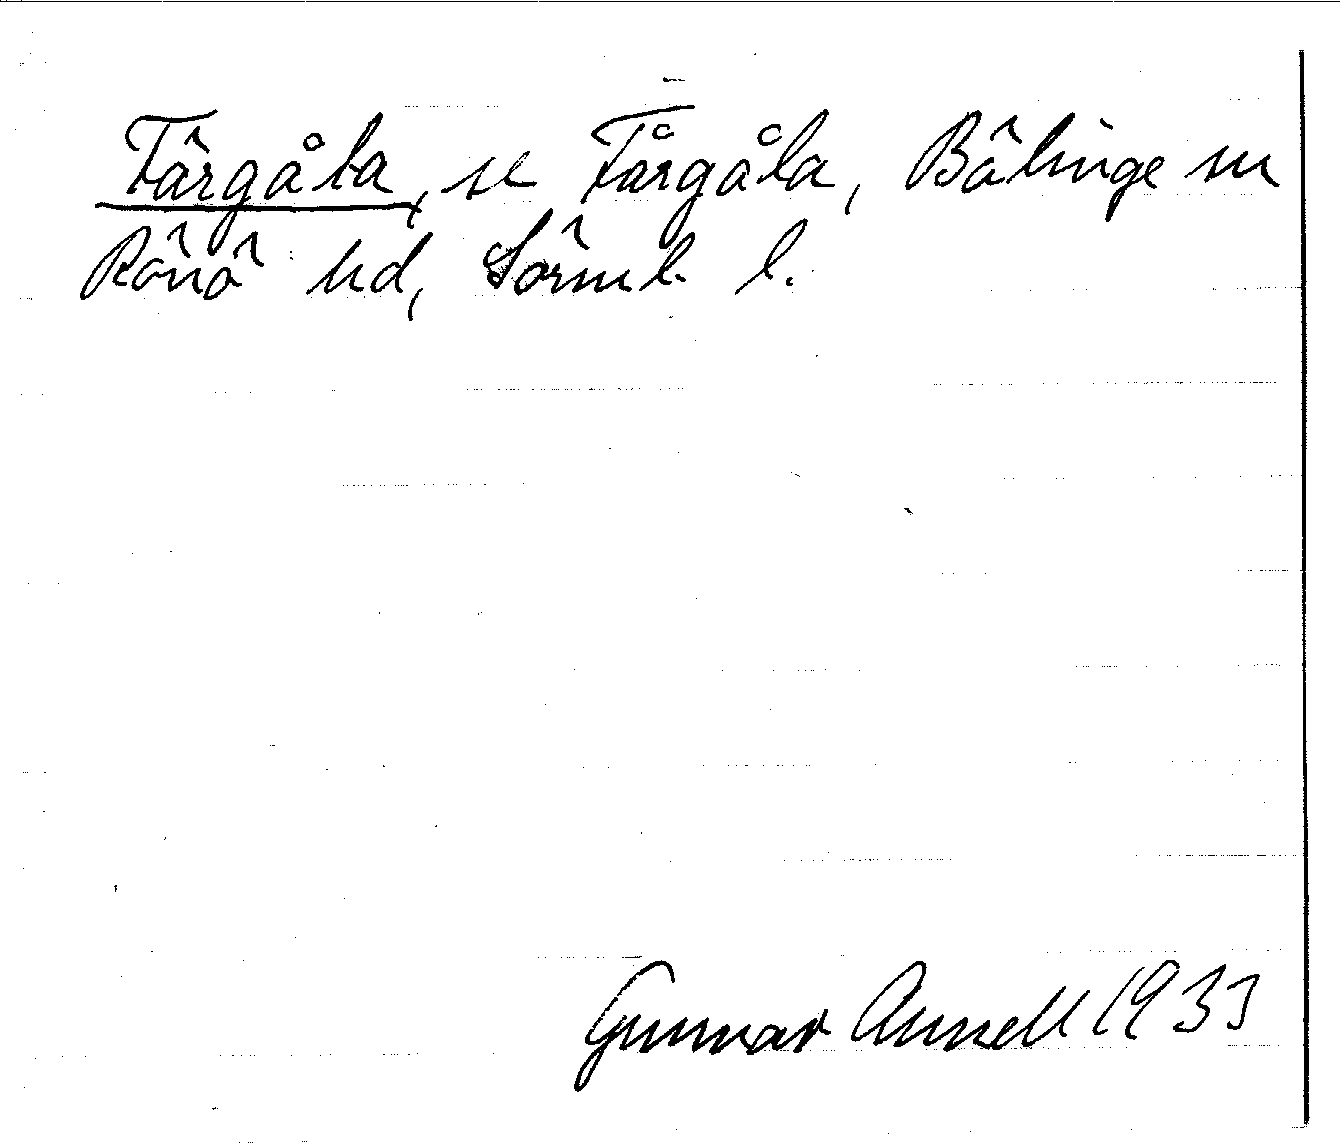 Färgåla, se Fårgåla, Bälinge sn
Rönö hd, Sörml. l.
Gunnar Annell 1933